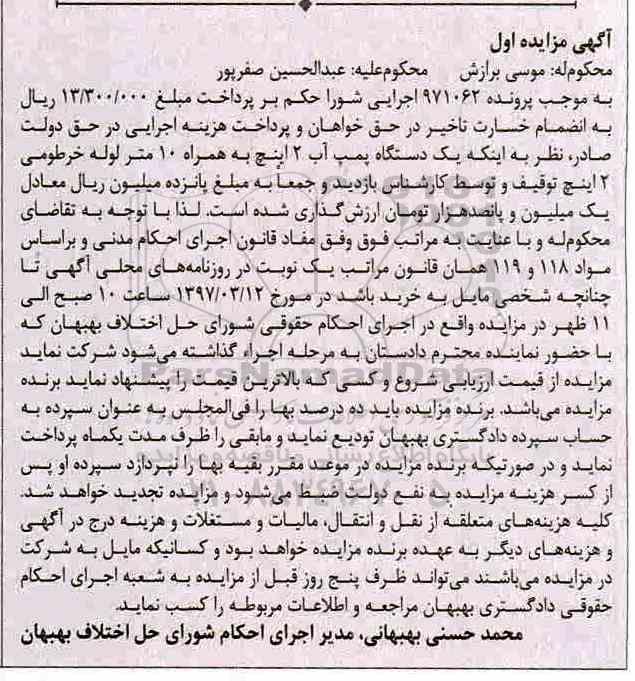 آگهی مزایده اول
محکوم‌له: موسی برازش محکوم‌علیه: عبدالحسین صفرپور
به موجب پرونده ۹۷۱۰۶۲ اجرایی شورا حکم بر پرداخت مبلغ ۱۳/۳۰۰/۰۰۰ ریال
به انضمام خسارت تاخیر در حق خواهان و پرداخت هزینه اجرایی در حق دولت
صادر، نظر به اینکه یک دستگاه پمپ آب ۲ اینچ به همراه ۱۰ متر لوله خرطومی
۲ اینچ توقیف و توسط کارشناس بازدید و جمعاً به مبلغ پانزده میلیون ریال معادل
یک میلیون و پانصدهزار تومان ارزش‌گذاری شده است. لذا با توجه به تقاضای
محکوم‌له و با عنایت به مراتب فوق وفق مفاد قانون اجرای احکام مدنی و براساس
مواد ۱۱۸ و ۱۱۹ همان قانون مراتب یک نوبت در روزنامه‌های محلی آگهی تا
چنانچه شخصی مایل به خرید باشد در مورخ ۱۳۹۷/۰۳/۱۲ ساعت ۱۰ صبح الی
۱۱ ظهر در مزایده واقع در اجرای احکام حقوقی شورای حل اختلاف بهبهان که
با حضور نماینده محترم دادستان به مرحله اجراء گذاشته می‌شود شرکت نماید
مزایده از قیمت ارزیابی شروع و کسی که بالاترین قیمت را پیشنهاد نماید برنده
مزایده می‌باشد. برنده مزایده باید ده درصد بها را فی‌المجلس به عنوان سپرده به
حساب سپرده دادگستری بهبهان تودیع نماید و مابقی را ظرف مدت یکماه پرداخت
نماید و در صورتیکه برنده مزایده در موعد مقرر بقیه بها را نپردازد سپرده او پس
از کسر هزینه مزایده به نفع دولت ضبط می‌شود و مزایده تجدید خواهد شد.
کلیه هزینه‌های متعلقه از نقل و انتقال، مالیات و مستغلات و هزینه درج در آگهی
و هزینه‌های دیگر به عهده برنده مزایده خواهد بود و کسانیکه مایل به شرکت
در مزایده می‌باشند می‌تواند ظرف پنج روز قبل از مزایده به شعبه اجرای احکام
حقوقی دادگستری بهبهان مراجعه و اطلاعات مربوطه را کسب نماید.
محمد حسنی بهبهانی، مدیر اجرای احکام شورای حل اختلاف بهبهان
ParsNamadData
پایگاه اطلاع رسانی مناقصه و مزایده